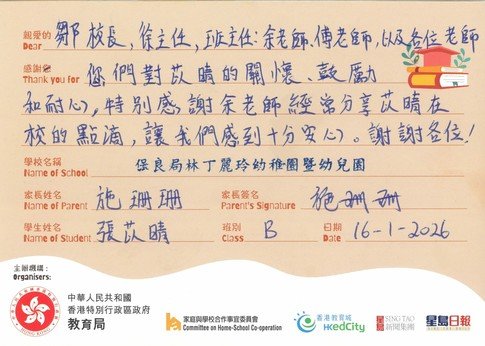 親愛的 鄒校長, 徐主任, 班主任:余老師、傅老師, 以及各位老師
Dear
感謝您 你們對苡晴的關懷、鼓勵
Thank you for
和耐心, 特別感謝余老師經常分享苡晴在
校的點滴, 讓我們感到十分安心。謝謝各位!
學校名稱 保良局林丁麗玲幼稚園暨幼兒園
Name of School
家長姓名 施珊珊 家長簽名 施珊珊
Name of Parent Parent's Signature
學生姓名 張苡晴 班別 B 日期 16-1-2026
Name of Student Class Date
主辦機構:
Organisers:
中華人民共和國
香港特別行政區政府
教育局
家庭與學校合作事宜委員會
Committee on Home-School Co-operation
香港教育城
HKedCity
星島 SING TAO
新聞集團
星島日報